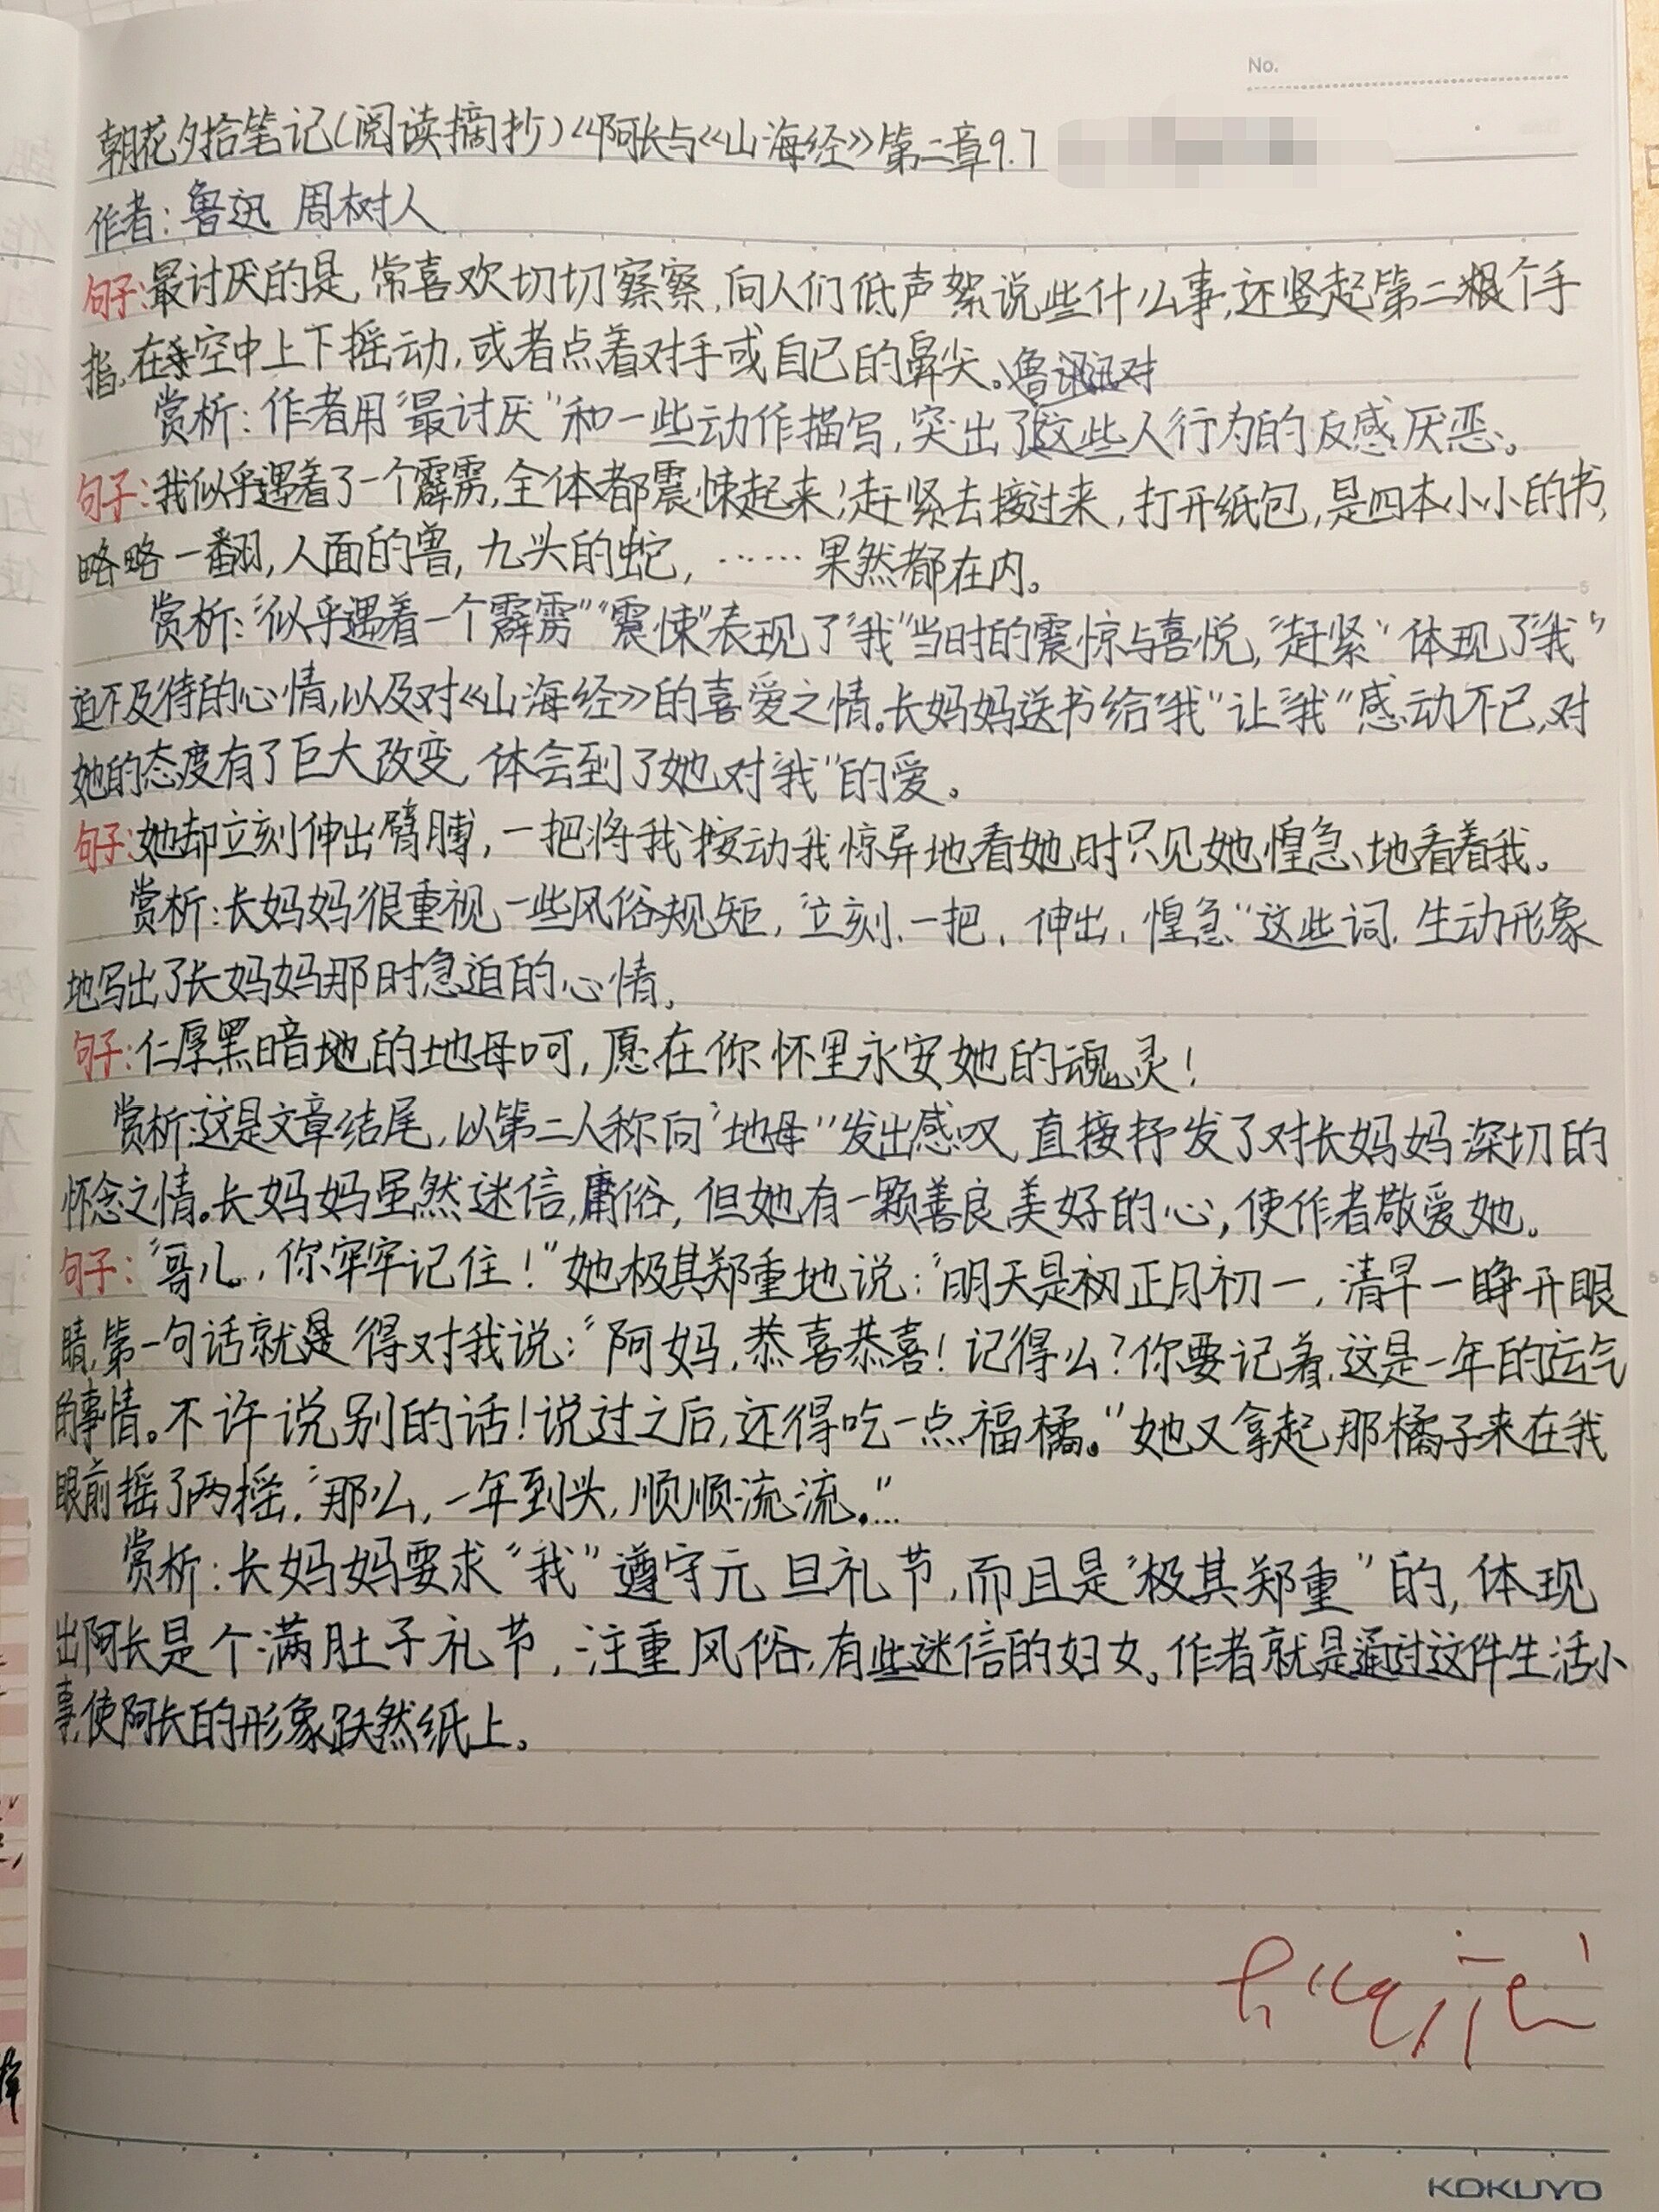 No.
朝花夕拾笔记(阅读摘抄)《阿长与《山海经》第二章9.7
作者:鲁迅 周树人
句子:最讨厌的是,常喜欢切切察察,向人们低声絮说些什么事,还竖起第二个手
指,在空中上下摇动,或者点着对手或自己的鼻尖。
赏析:作者用“最讨厌”和一些动作描写,突出了这些人行为的反感、厌恶。
句子:我似乎遇着了一个霹雳,全体都震悚起来;赶紧去接过来,打开纸包,是四本小小的书,
略略一翻,人面的兽,九头的蛇,……果然都在内。
赏析:“似乎遇着一个霹雳”“震悚”表现了“我”当时的震惊与喜悦,“赶紧”体现了“我”
迫不及待的心情,以及对《山海经》的喜爱之情。长妈妈送书给“我”让“我”感动不已,对
她的态度有了巨大改变,体会到了她对“我”的爱。
句子:她却立刻伸出臂膊,一把将我按动我惊异地看她时只见她惶急地看着我。
赏析:长妈妈很重视一些风俗规矩,“立刻、一把、伸出、惶急”这些词,生动形象
地写出了长妈妈那时急迫的心情。
句子:仁厚黑暗地的地母呵,愿在你怀里永安她的魂灵!
赏析:这是文章结尾,以第二人称向“地母”发出感叹,直接抒发了对长妈妈深切的
怀念之情。长妈妈虽然迷信,庸俗,但她有一颗善良美好的心,使作者敬爱她。
句子:“哥儿,你牢牢记住!”她极其郑重地说:“明天是正月初一,清早一睁开眼
睛,第一句话就是得对我说:“阿妈,恭喜恭喜!记得么?你要记着,这是一年的运气
的事情。不许说别的话!说过之后,还得吃一点福橘。”她又拿起那橘子来在我
眼前摇了两摇,“那么,一年到头,顺顺流流。”…
赏析:长妈妈要求“我”遵守元旦礼节,而且是“极其郑重”的,体现
出阿长是个满肚子礼节,注重风俗,有些迷信的妇女。作者就是通过这件生活小
事,使阿长的形象跃然纸上。
KOKUYO